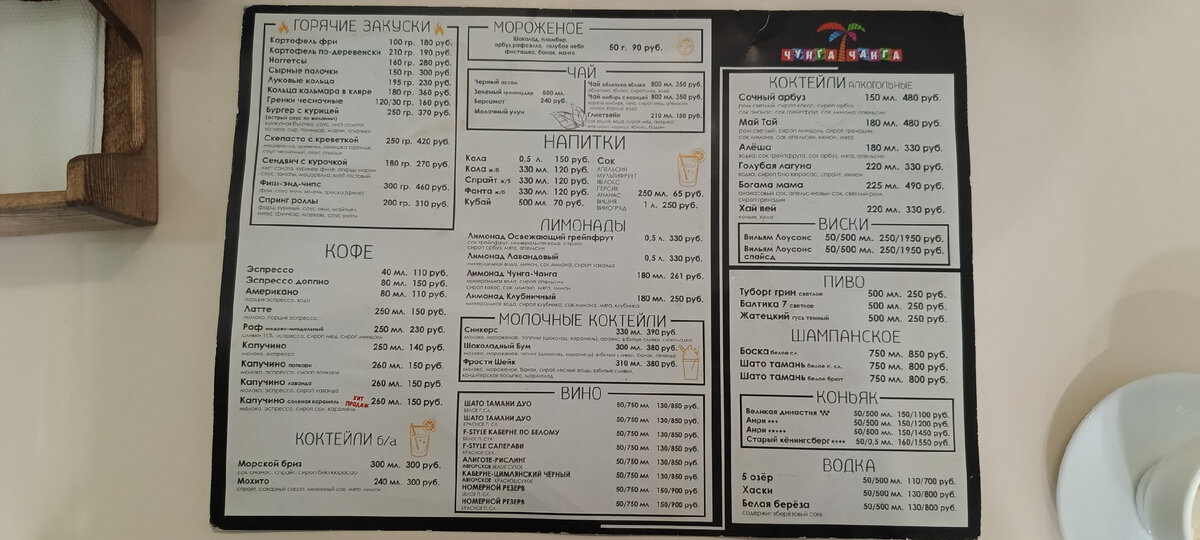 ГОРЯЧИЕ ЗАКУСКИ
Картофель фри 100 гр. 180 руб.
Картофель по-деревенски 210 гр. 190 руб.
Наггетсы 160 гр. 280 руб.
Сырные палочки 150 гр. 300 руб.
Луковые кольца 195 гр. 230 руб.
Кольца кальмара в кляре 180 гр. 360 руб.
Гренки чесночные 120/30 гр. 160 руб.
Бургер с курицей 250 гр. 370 руб.
(острый соус по желанию)
Скепасто с креветкой 250 гр. 420 руб.
Сендвич с курочкой 180 гр. 270 руб.
Фиш-энд-чипс 300 гр. 460 руб.
Спринг роллы 200 гр. 310 руб.
КОФЕ
Эспрессо 40 мл. 110 руб.
Эспрессо доппио 80 мл. 150 руб.
Американо 80 мл. 110 руб.
порция эспрессо, вода
Латте 250 мл. 150 руб.
молоко, порция эспрессо
Раф медово-миндальный 250 мл. 230 руб.
сливки 11%, эспрессо, сироп мед, сироп миндаль
Капучино 250 мл. 140 руб.
молоко, эспрессо
Капучино попкорн 260 мл. 150 руб.
молоко, эспрессо, сироп попкорн
Капучино лаванда 260 мл. 150 руб.
молоко, эспрессо, сироп лаванда
Капучино соленая карамель ХИТ ПРОДАЖ 260 мл. 150 руб.
молоко, эспрессо, сироп сол. карамель
КОКТЕЙЛИ б/а
Морской бриз 300 мл. 300 руб.
сок ананас, спрайт, сироп блю кюрасао
Мохито 240 мл. 300 руб.
спрайт, сахарный сироп, лимонный сок, мята, лимон
МОРОЖЕНОЕ
Шоколад, пломбир,
арбуз, рафаэлло, голубое небо,
фисташка, банан, манго
50 г. 90 руб.
ЧАЙ
Черный ассам
Зеленый ганпаудер
Бергамот
Молочный улун
500 мл.
240 руб.
Чай облепиха-яблоко 800 мл. 350 руб.
облепиха, яблоко, сироп мед, вода
Чай имбирь с корицей 800 мл. 350 руб.
Глинтвейн 210 мл. 150 руб.
НАПИТКИ
Кола 0,5 л. 150 руб.
Кола ж/б 330 мл. 120 руб.
Спрайт ж/б 330 мл. 120 руб.
Фанта ж/б 330 мл. 120 руб.
Кубай 500 мл. 70 руб.
Сок
АПЕЛЬСИН
МУЛЬТИФРУКТ
ЯБЛОКО
ПЕРСИК
АНАНАС
ВИШНЯ
ВИНОГРАД
250 мл. 65 руб.
1 л. 250 руб.
ЛИМОНАДЫ
Лимонад Освежающий грейпфрут 0,5 л. 330 руб.
сок грейпфрут, минеральная вода, спрайт,
сироп арбуз, мята, апельсин
Лимонад Лавандовый 0,5л. 330 руб.
минеральная вода, лимон, сок лимона, сироп лаванда
Лимонад Чунга-Чанга 180 мл. 261 руб.
минеральная вода, сироп апельсин,
Лимонад Клубничный 180 мл. 250 руб.
минеральная вода, сироп клубника, сок лимона, мята, клубника
МОЛОЧНЫЕ КОКТЕЙЛИ
Сникерс 330 мл. 390 руб.
Шоколадный Бум 300 мл. 380 руб.
молоко, мороженое, топпинг (шоколад, карамель), взбитые сливки, банан, печенье
Фрости Шейк 310 мл. 380 руб.
молоко, мороженое, банан, сироп лесные ягоды, взбитые сливки,
кондитерская посыпка, мармелад
ВИНО
ШАТО ТАМАНИ ДУО 50/750 мл 130/850 руб.
БЕЛОЕ П. СЛ.
ШАТО ТАМАНИ ДУО 50/750 мл 130/850 руб.
КРАСНОЕ П. СЛ.
F-STYLE КАБЕРНЕ ПО БЕЛОМУ 50/750 мл 130/850 руб.
БЕЛОЕ П. СУХ.
F-STYLE САПЕРАВИ 50/750 мл 130/850 руб.
КРАСНОЕ СУХ.
АЛИГОТЕ-РИСЛИНГ 50/750 мл 130/850 руб.
АВТОРСКОЕ БЕЛОЕ СУХОЕ
КАБЕРНЕ-ЦИМЛЯНСКИЙ ЧЕРНЫЙ 50/750 мл 130/850 руб.
АВТОРСКОЕ КРАСНОЕ СУХОЕ
НОМЕРНОЙ РЕЗЕРВ 50/750 мл 150/900 руб.
БЕЛОЕ П. СЛ.
НОМЕРНОЙ РЕЗЕРВ 50/750 мл 150/900 руб.
КРАСНОЕ П. СЛ.
ЧУНГА ЧАНГА
КОКТЕЙЛИ АЛКОГОЛЬНЫЕ
Сочный арбуз 150 мл. 480 руб.
Май Тай 180 мл. 480 руб.
ром светлый, сироп миндаль, сироп гренадин
сок лимона, сок апельсин, лимон, мята
Алёша 180 мл. 330 руб.
водка, сок грейпфрута, сироп арбуз, мята, апельсин
Голубая лагуна 220 мл. 330 руб.
водка, сироп блю кюрасао, спрайт, лимон
Богама мама 225 мл. 490 руб.
ананасовый сок, апельсиновый сок, светлый ром,
сироп гренадин
Хай вей 220 мл. 330 руб.
коньяк, кола
ВИСКИ
Вильям Лоусонс 50/500 мл. 250/1950 руб.
Вильям Лоусонс 50/500 мл. 250/1950 руб.
спайсд
ПИВО
Туборг грин светлое 500 мл. 250 руб.
Балтика 7 светлое 500 мл. 250 руб.
Жатецкий гусь темный 500 мл. 250 руб.
ШАМПАНСКОЕ
Боска белое сл. 750 мл. 850 руб.
Шато тамань белое п. сл. 750 мл. 800 руб.
Шато тамань белое брют 750 мл. 800 руб.
КОНЬЯК
Великая династия 50/500 мл. 150/1100 руб.
Анри *** 50/500 мл. 150/1200 руб.
Анри ***** 50/500 мл. 150/1450 руб.
Старый кёнингсберг **** 50/0,5 мл. 160/1550 руб.
ВОДКА
5 озёр 50/500 мл. 110/700 руб.
Хаски 50/500 мл. 130/800 руб.
Белая берёза 50/500 мл. 130/800 руб.
содержит «берёзовый сок»